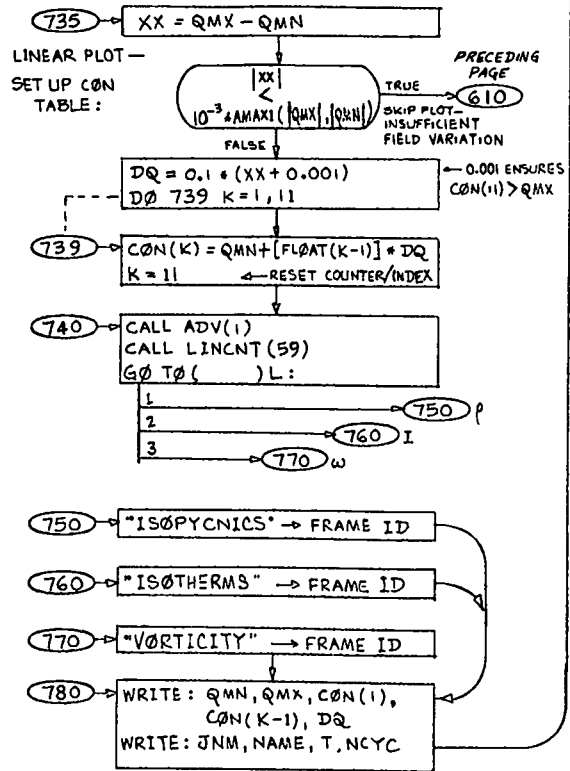 735
XX = QMX - QMN
LINEAR PLOT—
SET UP CØN
TABLE:
|XX|
<
10⁻³*AMAX1(|QMX|,|QMN|)
TRUE
PRECEDING
PAGE
610
SKIP PLOT—
INSUFFICIENT
FIELD VARIATION
FALSE
DQ = 0.1 * (XX + 0.001)
DØ 739 K = 1, 11
0.001 ENSURES
CØN(11) > QMX
739
CØN(K) = QMN+[FLØAT(K-1)] * DQ
K = 11 ← RESET COUNTER/INDEX
740
CALL ADV(1)
CALL LINCNT(59)
GØ TØ ( ) L:
1
750 ρ
2
760 I
3
770 ω
750
"ISØPYCNICS" → FRAME ID
760
"ISØTHERMS" → FRAME ID
770
"VØRTICITY" → FRAME ID
780
WRITE: QMN, QMX, CØN(1),
CØN(K-1), DQ
WRITE: JNM, NAME, T, NCYC